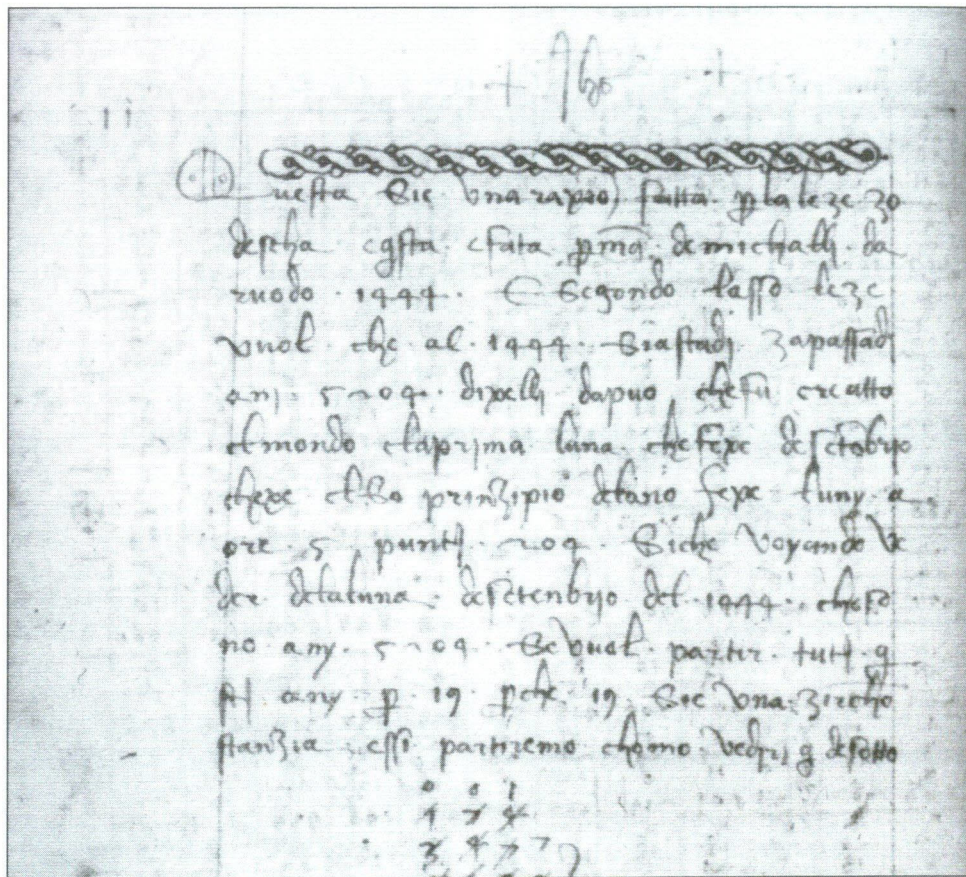 11
uesta sie una raxio fatta p la leze zo
descha e qsta e fata p ma de michalli da
ruodo · 1444 · E segondo lasso leze
vuol che al · 1444 · sia stadi za passadi
ani · 5204 · dixelli dapuo che fu creatto
el mondo e la prima luna che fexe de setebrio
che xe el so prinzipio de lano fexe luny a
ore · 5 · punti · 204 · Siche voyando ve
der dela luna · de setenbrio del · 1444 · che so
no any · 5204 · Se vuol partir tuti q
sti any p 19 p che 19 Sie una zircho
stanzia essi partiremo chomo vediri q de sotto
0 0 1